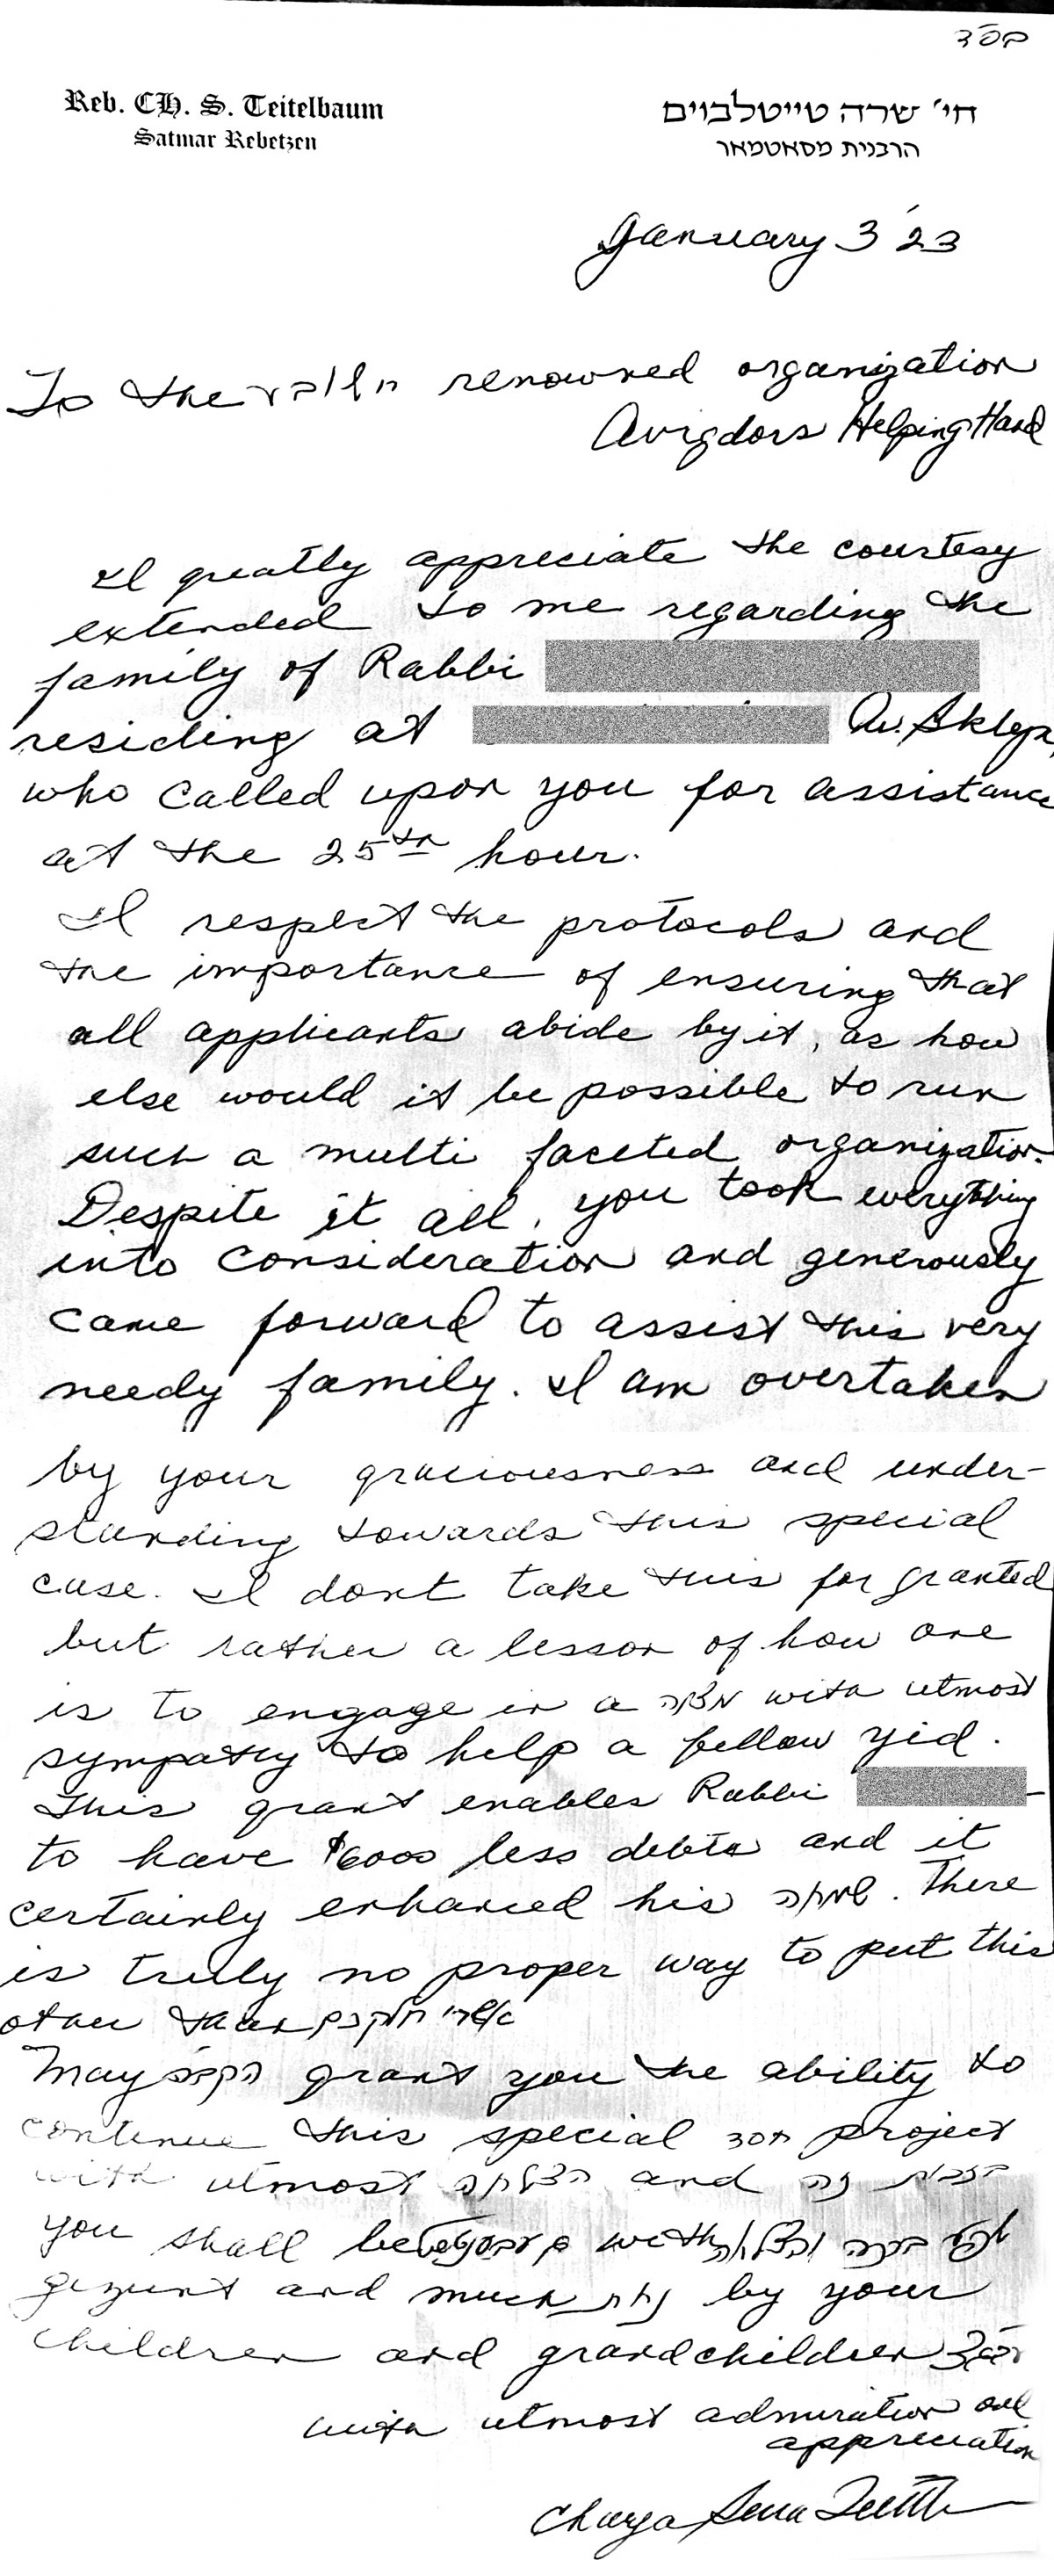 בס"ד
Reb. CH. S. Teitelbaum
Satmar Rebetzen
חי׳ שרה טייטלבוים
הרבנית מסאטמאר
January 3 '23
To the renowned organization
Avigdors Helping Hand
I greatly appreciate the courtesy
extended to me regarding the
family of Rabbi
residing at Av. Bklyn,
who called upon you for assistance
at the 25th hour.
I respect the protocols and
the importance of ensuring that
all applicants abide by it, as how
else would it be possible to run
such a multi faceted organization.
Despite it all, you took everything
into consideration and generously
came forward to assist this very
needy family. I am overtaken
by your graciousness and under-
standing towards this special
case. I dont take this for granted
but rather a lesson of how one
is to engage in a מצוה with utmost
sympathy to help a fellow yid.
This grant enables Rabbi
to have $6000 less debts and it
certainly enhanced his שמחה. There
is truly no proper way to put this
other than אשרי חלקכם
May הקב"ה grant you the ability to
continue this special חסד project
with utmost הצלחה and בזכות זה
you shall be with ברכה והצלחה
gezunt and much נחת by your
children and grandchildren
with utmost admiration and
appreciation
Chaya Sura Teitelb